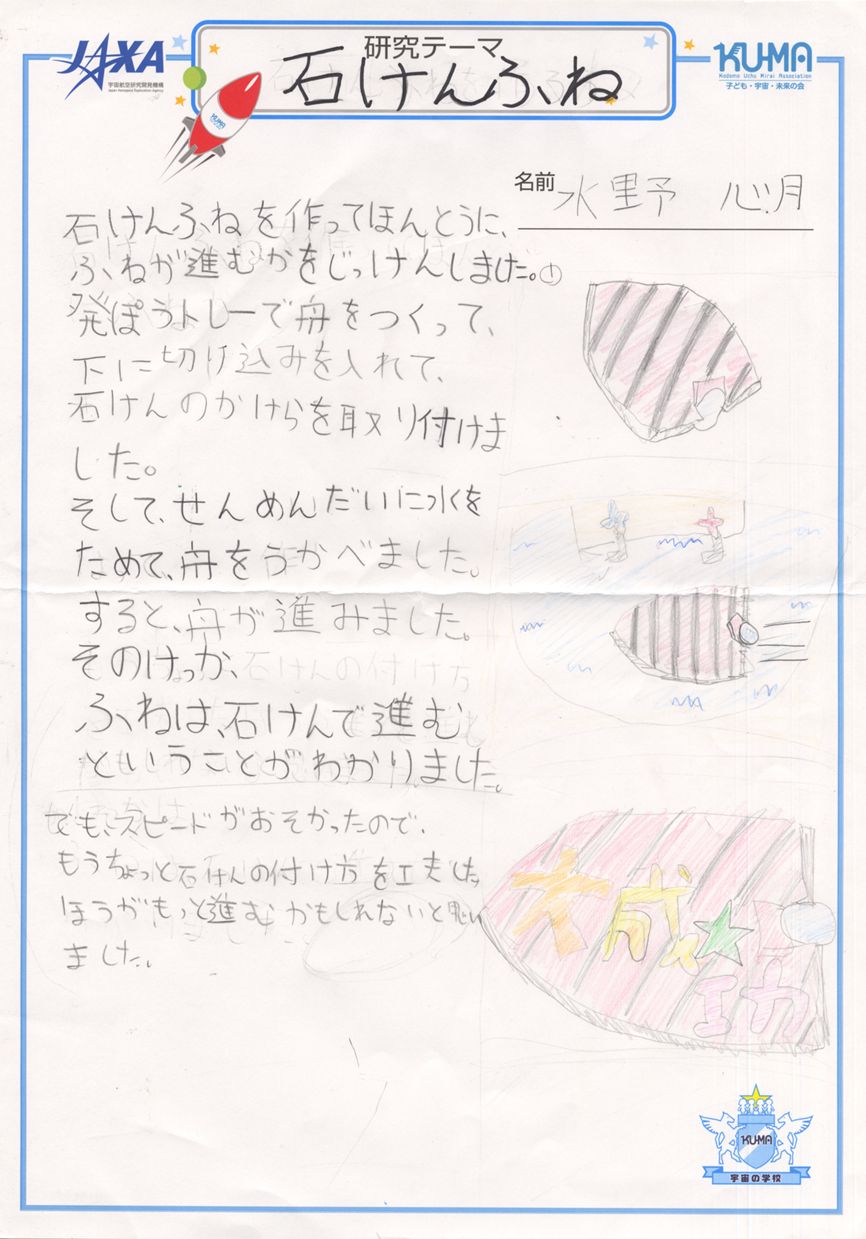 JAXA
宇宙航空研究開発機構
Japan Aerospace Exploration Agency
研究テーマ
石けんふね
KUMA
Kodomo Uchu Mirai Association
子ども・宇宙・未来の会
KUMA
名前 水野 心月
石けんふねを作ってほんとうに、
ふねが進むかをじっけんしました。①
発ぽうトレーで舟をつくって、
下に切け込みを入れて、
石けんのかけらを取り付けま
した。
そして、せんめんだいに水を
ためて、舟をうかべました。
すると、舟が進みました。
そのけっか、
ふねは、石けんで進む
ということがわかりました。
でも、スピードがおそかったので、
もうちょっと石けんの付け方を工夫した
ほうがもっと進むかもしれないと思い
ました。
大成功
KUMA
宇宙の学校